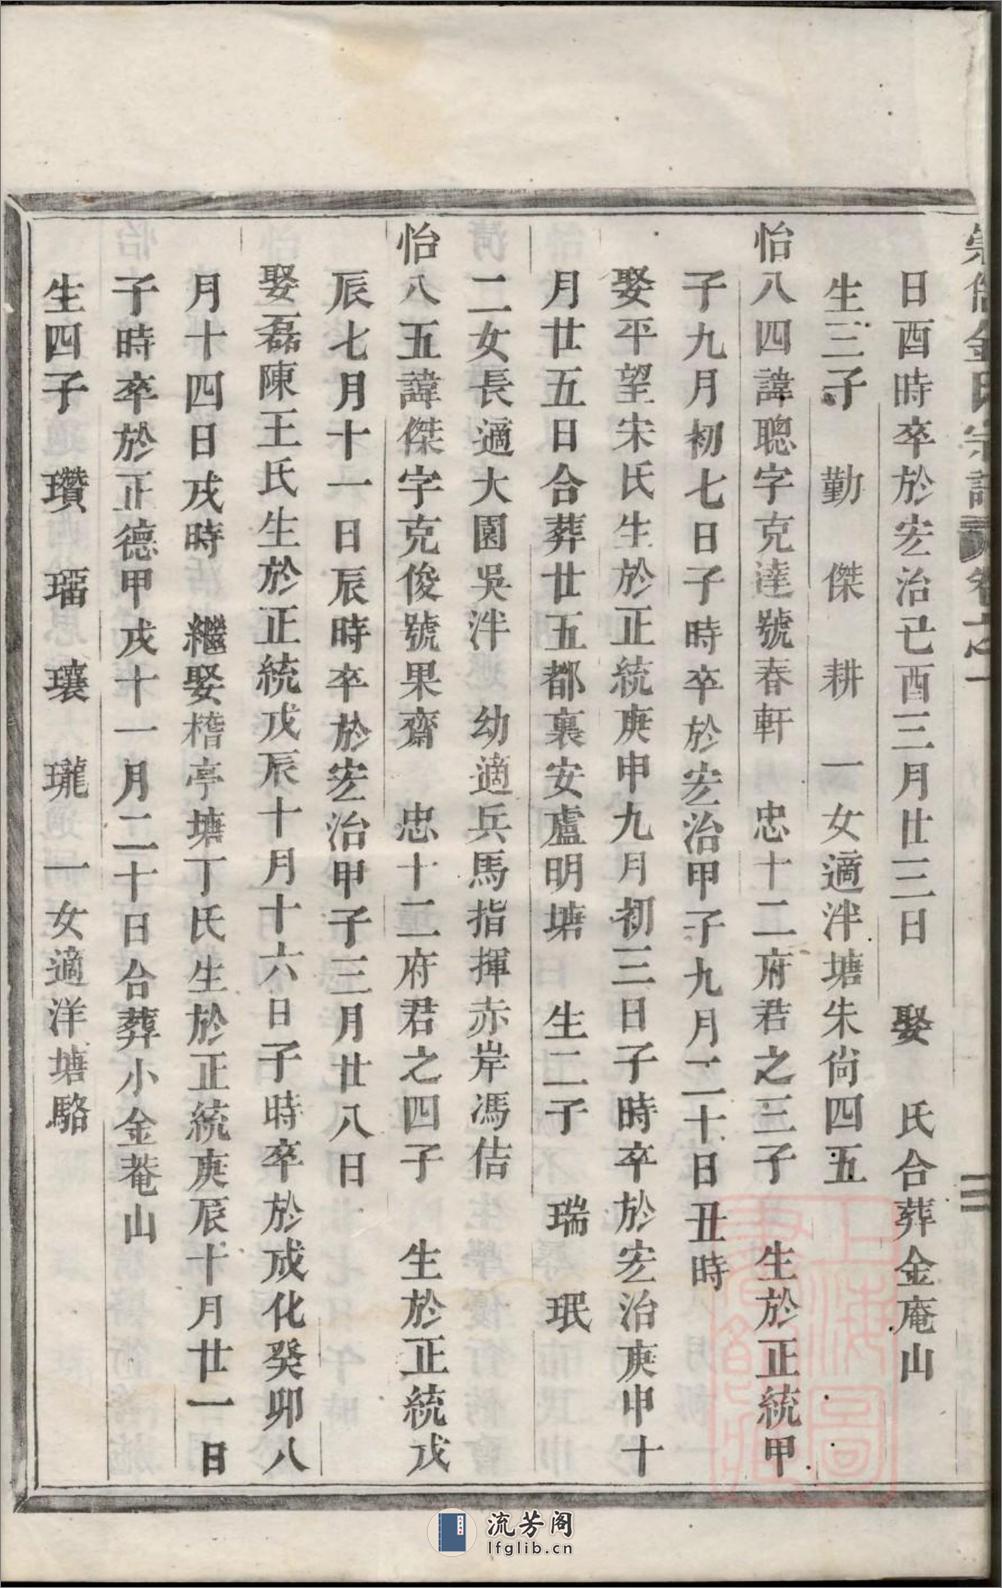 日酉時卒於宏治己酉三月廿三日　娶　氏合葬金庵山
生三子　勤　傑　耕　一女適泮塘朱尙四五
怡八四諱聰字克達號春軒　忠十二府君之三子　生於正統甲
子九月初七日子時卒於宏治甲子九月二十日丑時
娶平望宋氏生於正統庚申九月初三日子時卒於宏治庚申十
月廿五日合葬廿五都裏安盧明塘　生二子　瑞　珉
二女長適大園吳泮　幼適兵馬指揮赤岸馮佶
怡八五諱傑字克俊號果齋　忠十二府君之四子　生於正統戊
辰七月十一日辰時卒於宏治甲子三月廿八日
娶磊陳王氏生於正統戊辰十月十六日子時卒於成化癸卯八
月十四日戌時　繼娶稽亭塘丁氏生於正統庚辰十月廿一日
子時卒於正德甲戌十一月二十日合葬小金菴山
生四子　瓚　璠　瓖　瓏　一女適洋塘駱
流芳阁
lfglib.cn